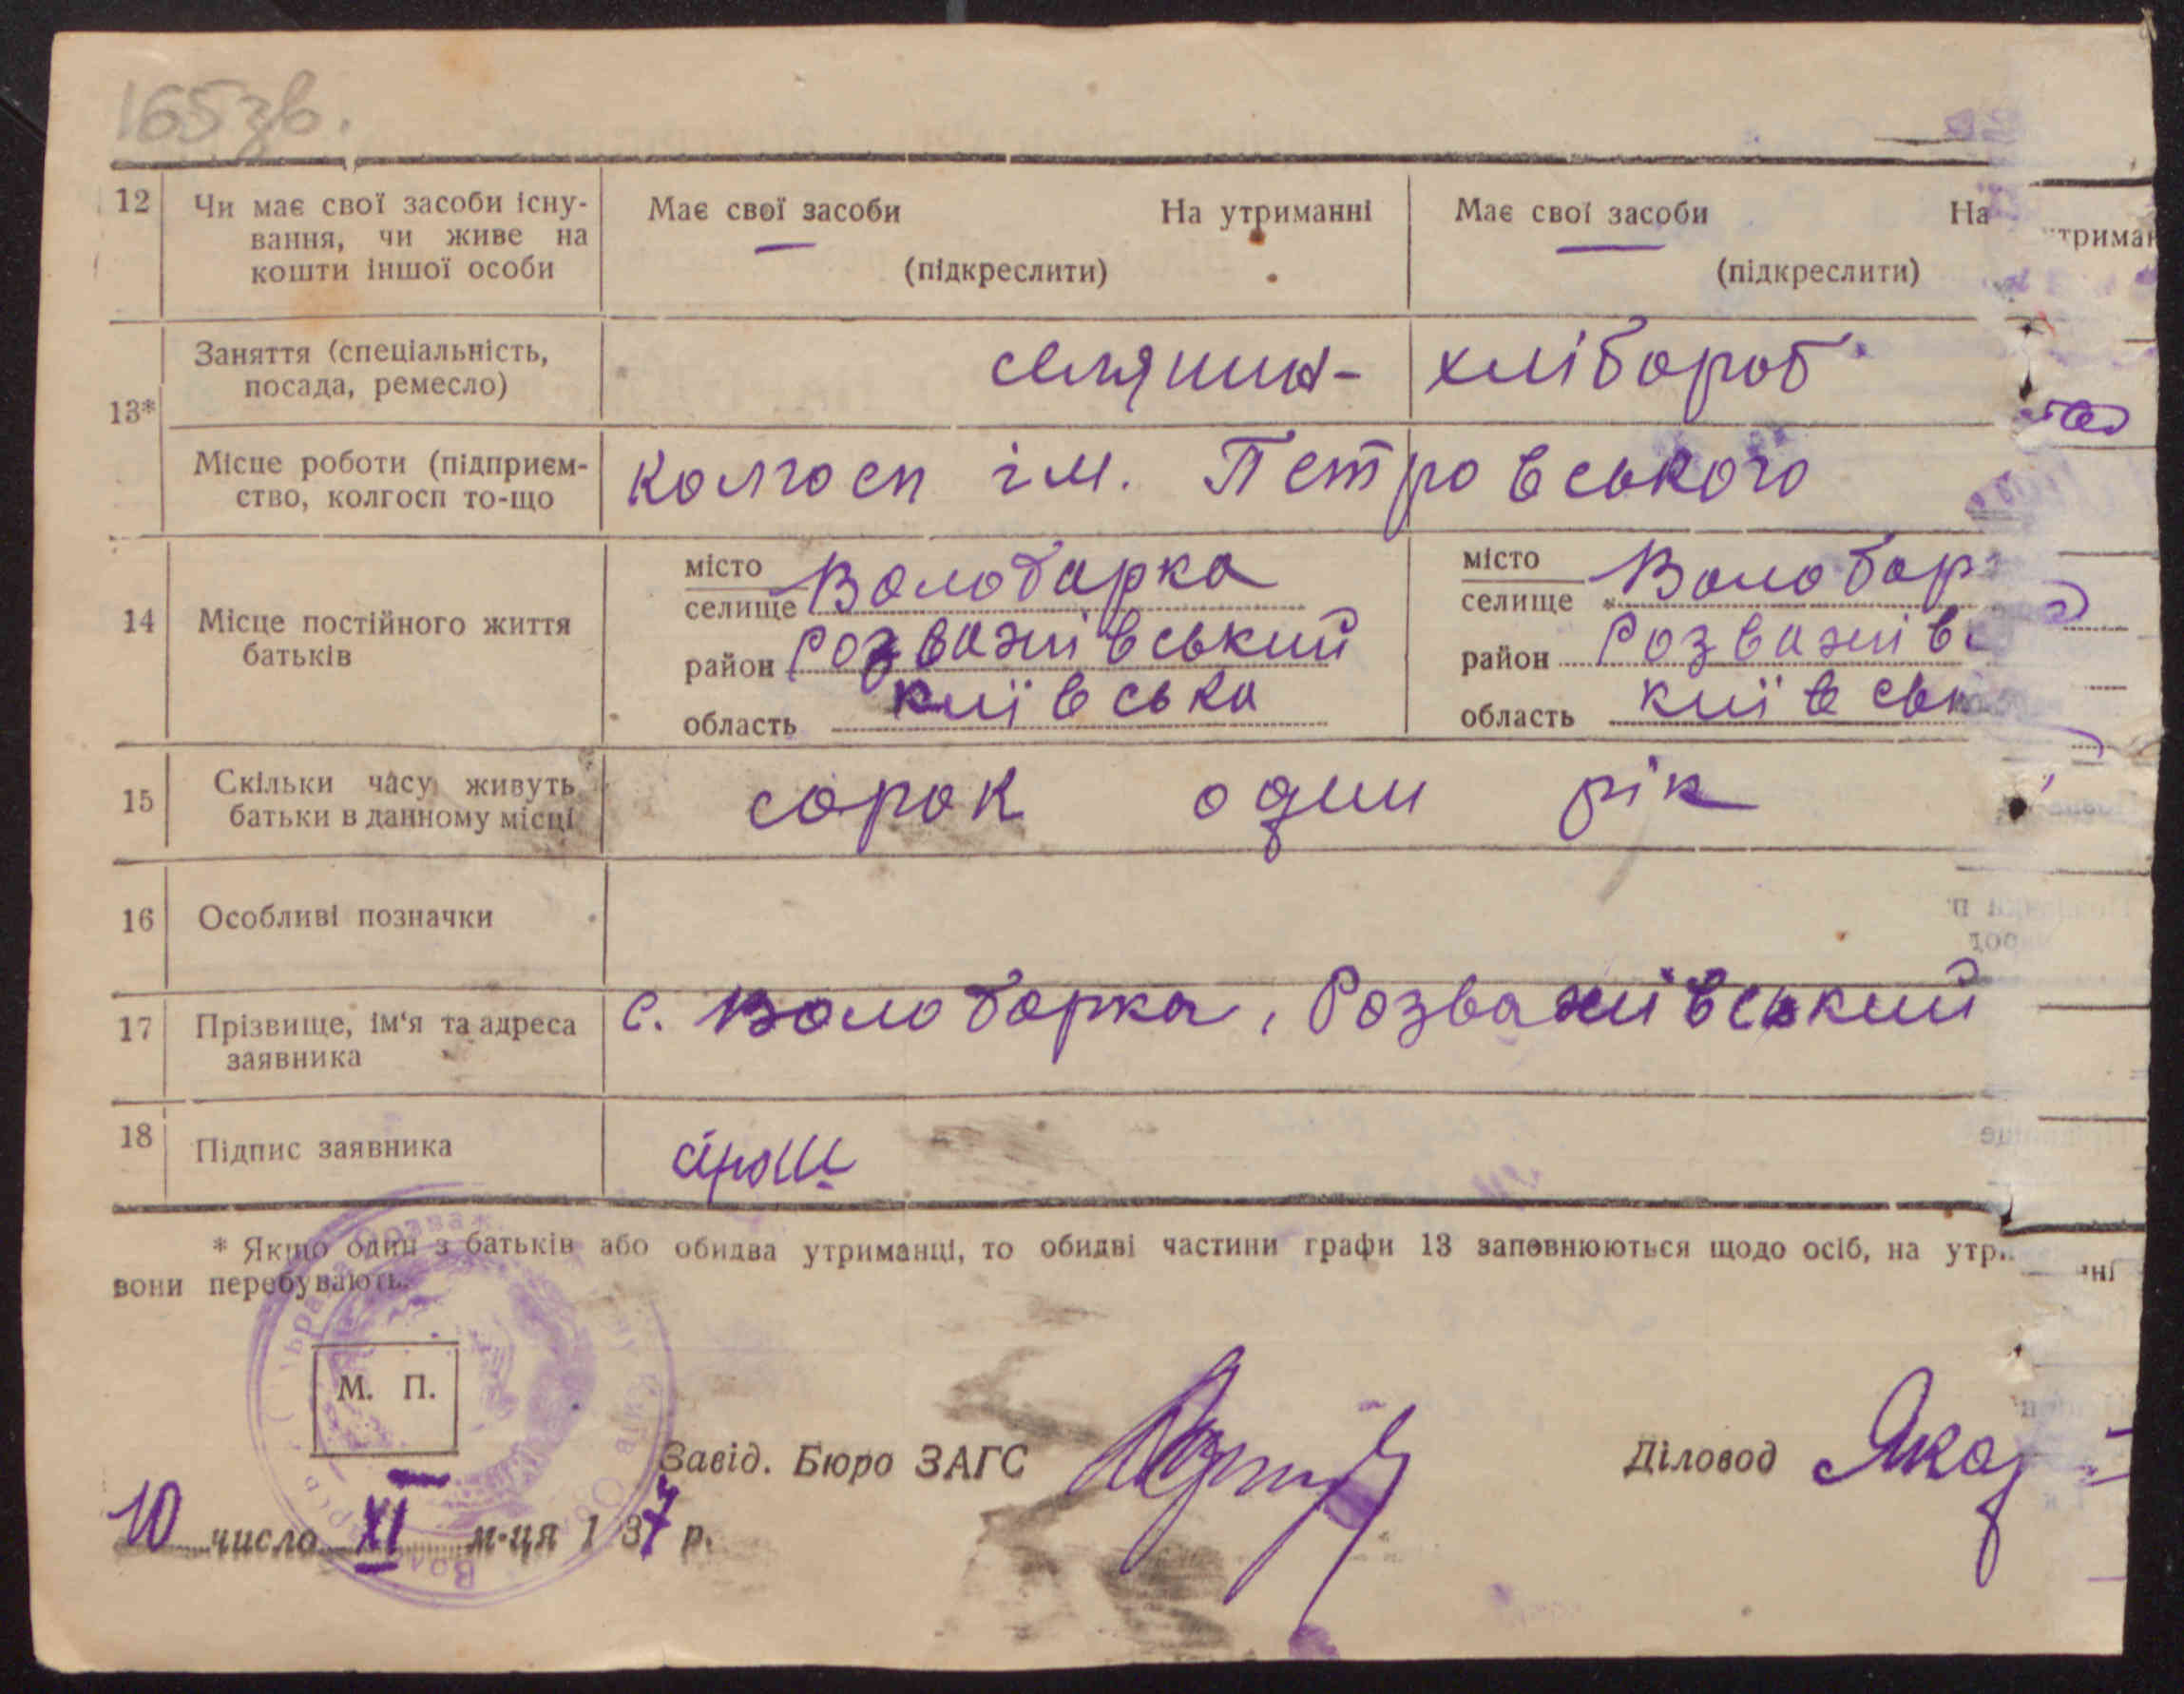 165зв.
12 Чи має свої засоби існу- Має свої засоби На утриманні Має свої засоби На
вання, чи живе на триман
кошти іншої особи (підкреслити) (підкреслити)
Заняття (спеціальність, селянин- хлібороб
посада, ремесло)
13*
Місце роботи (підприєм- колгосп ім. Петровського
ство, колгосп то-що
місто Володарка місто Володар
селище селище
14 Місце постійного життя район Розважівський район Розважів
батьків
область київська область київськ
15 Скільки часу живуть сорок один рік
батьки в данному місці
16 Особливі позначки
17 Прізвище, ім'я та адреса с. Володарка, Розважівський
заявника
18 Підпис заявника
* Якщо один з батьків або обидва утриманці, то обидві частини графи 13 заповнюються щодо осіб, на утр нні
вони перебувають.
М. П.
Завід. Бюро ЗАГС Діловод
10 число XI м-ця 1 37 р.